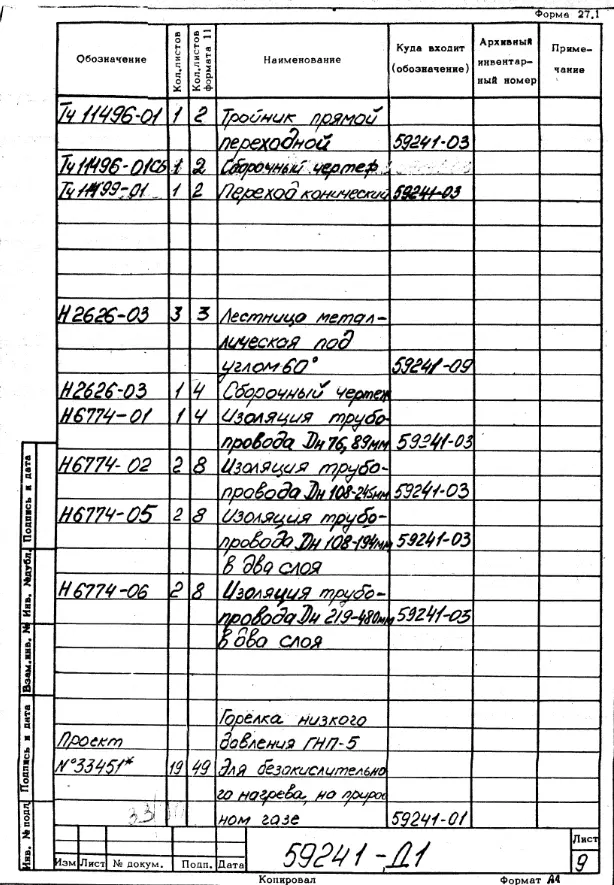 Форма 27.1
Обозначение
Кол.листов
Кол.листов формата 11
Наименование
Куда входит (обозначение)
Архивный инвентарный номер
Примечание
Тч 11496-01 1 2 Тройник прямой
переходной 59241-03
Тч 11496-01СБ 1 2 Сборочный чертеж
Тч 11499-01 1 2 Переход конический 59241-03
Н2626-03 3 3 Лестница метал-
лическая под
углом 60° 59241-09
Н2626-03 1 4 Сборочный чертеж
Н6774-01 1 4 Изоляция трубо-
провода Дн 76, 89мм 59241-03
Н6774-02 2 8 Изоляция трубо-
провода Дн 108-245мм 59241-03
Н6774-05 2 8 Изоляция трубо-
провода Дн 108-194мм 59241-03
в два слоя
Н6774-06 2 8 Изоляция трубо-
провода Дн 219-480мм 59241-03
в два слоя
Горелка низкого
Проект давления ГНП-5
№33451* 19 49 для безокислительно
го нагрева, на природ
ном газе 59241-01
Инв. № подл
Подпись и дата
Взам.инв. №
Инв. №дубл.
Подпись и дата
59241-Д1
Лист
9
Изм Лист № докум. Подп. Дата
Копировал Формат А4